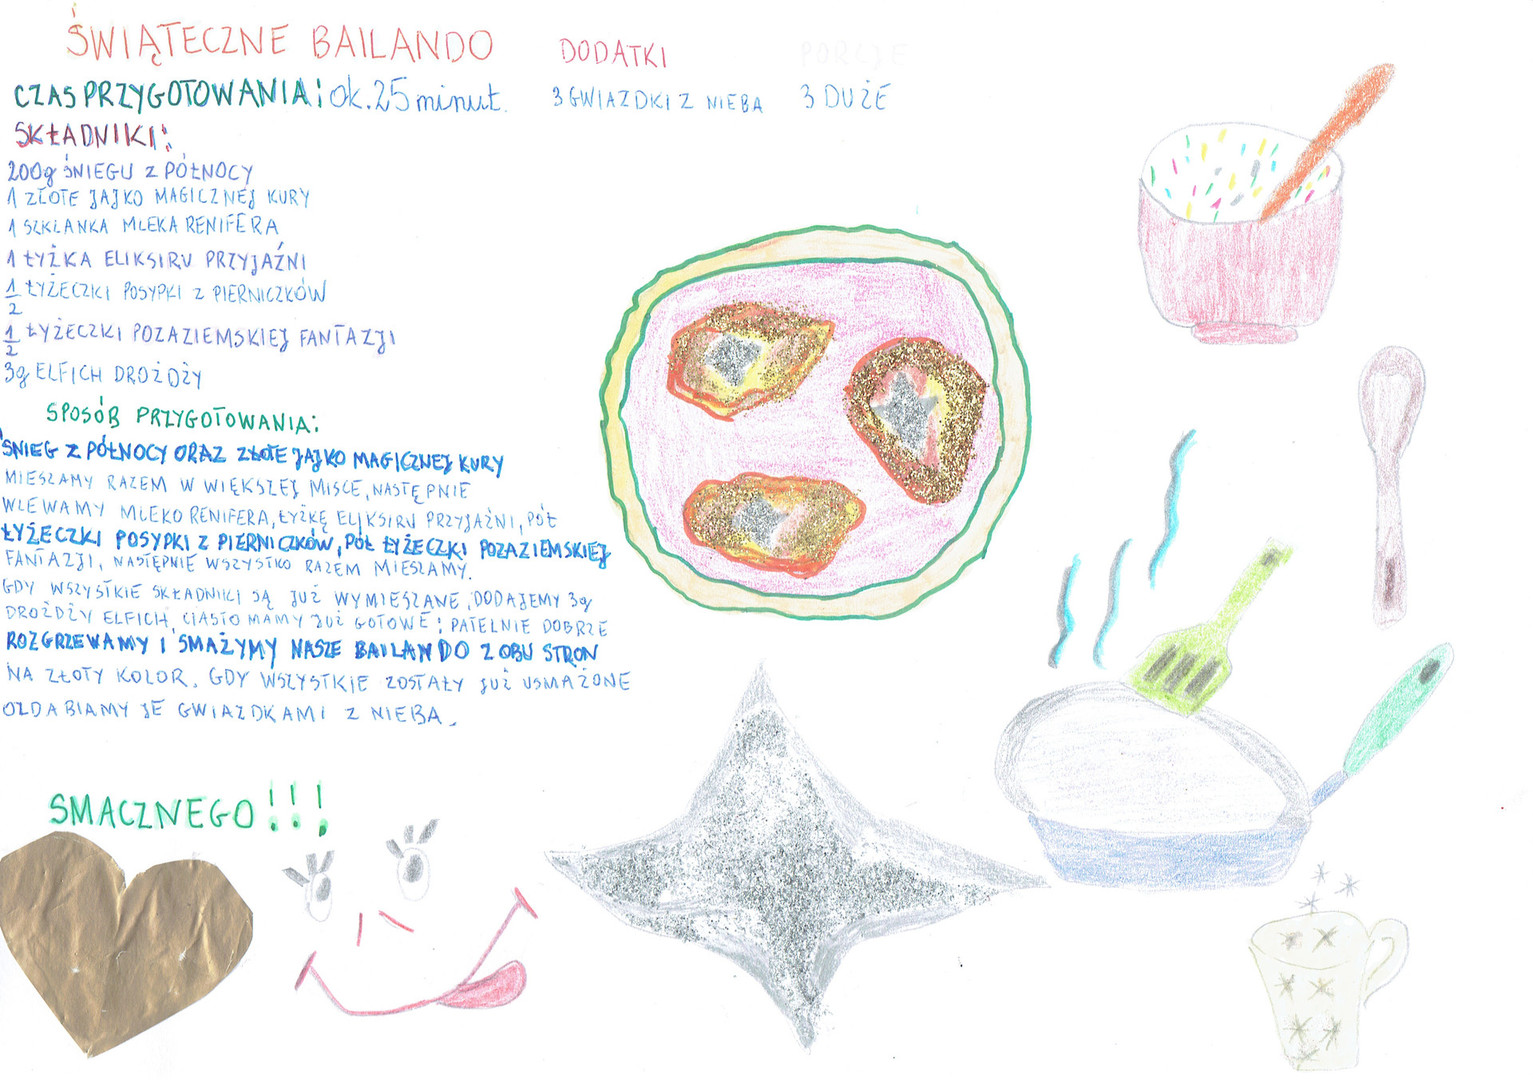 ŚWIĄTECZNE BAILANDO
CZAS PRZYGOTOWANIA: ok. 25 minut.
DODATKI
3 GWIAZDKI Z NIEBA
PORCJE
3 DUŻE
SKŁADNIKI:
200g ŚNIEGU Z PÓŁNOCY
1 ZŁOTE JAJKO MAGICZNEJ KURY
1 SZKLANKA MLEKA RENIFERA
1 ŁYŻKA ELIKSIRU PRZYJAŹNI
1/2 ŁYŻECZKI POSYPKI Z PIERNICZKÓW
1/2 ŁYŻECZKI POZAZIEMSKIEJ FANTAZJI
3g ELFICH DROŻDŻY
SPOSÓB PRZYGOTOWANIA:
ŚNIEG Z PÓŁNOCY ORAZ ZŁOTE JAJKO MAGICZNEJ KURY
MIESZAMY RAZEM W WIĘKSZEJ MISCE, NASTĘPNIE
WLEWAMY MLEKO RENIFERA, ŁYŻKĘ ELIKSIRU PRZYJAŹNI, PÓŁ
ŁYŻECZKI POSYPKI Z PIERNICZKÓW, PÓŁ ŁYŻECZKI POZAZIEMSKIEJ
FANTAZJI, NASTĘPNIE WSZYSTKO RAZEM MIESZAMY.
GDY WSZYSTKIE SKŁADNIKI SĄ JUŻ WYMIESZANE, DODAJEMY 3g
DROŻDŻY ELFICH, CIASTO MAMY JUŻ GOTOWE; PATELNIE DOBRZE
ROZGRZEWAMY I SMAŻYMY NASZE BAILANDO Z OBU STRON
NA ZŁOTY KOLOR. GDY WSZYSTKIE ZOSTAŁY JUŻ USMAŻONE
OZDABIAMY JE GWIAZDKAMI Z NIEBA.
SMACZNEGO!!!